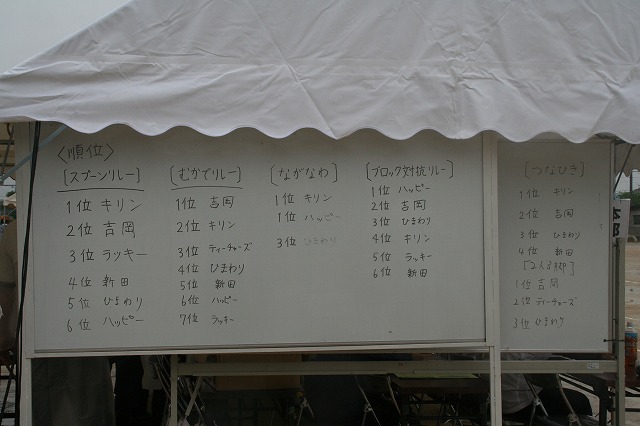 〈順位〉
[スプーンリレー]
1位 キリン
2位 吉岡
3位 ラッキー
4位 新田
5位 ひまわり
6位 ハッピー
[むかでリレー]
1位 吉岡
2位 キリン
3位 ティーチャーズ
4位 ひまわり
5位 新田
6位 ハッピー
7位 ラッキー
[ながなわ]
1位 キリン
1位 ハッピー
3位 ひまわり
[ブロック対抗リレー]
1位 ハッピー
2位 吉岡
3位 ひまわり
4位 キリン
5位 ラッキー
6位 新田
[つなひき]
1位 キリン
2位 吉岡
3位 ひまわり
4位 新田
[2人3脚]
1位 吉岡
2位 ティーチャーズ
3位 ひまわり
本部